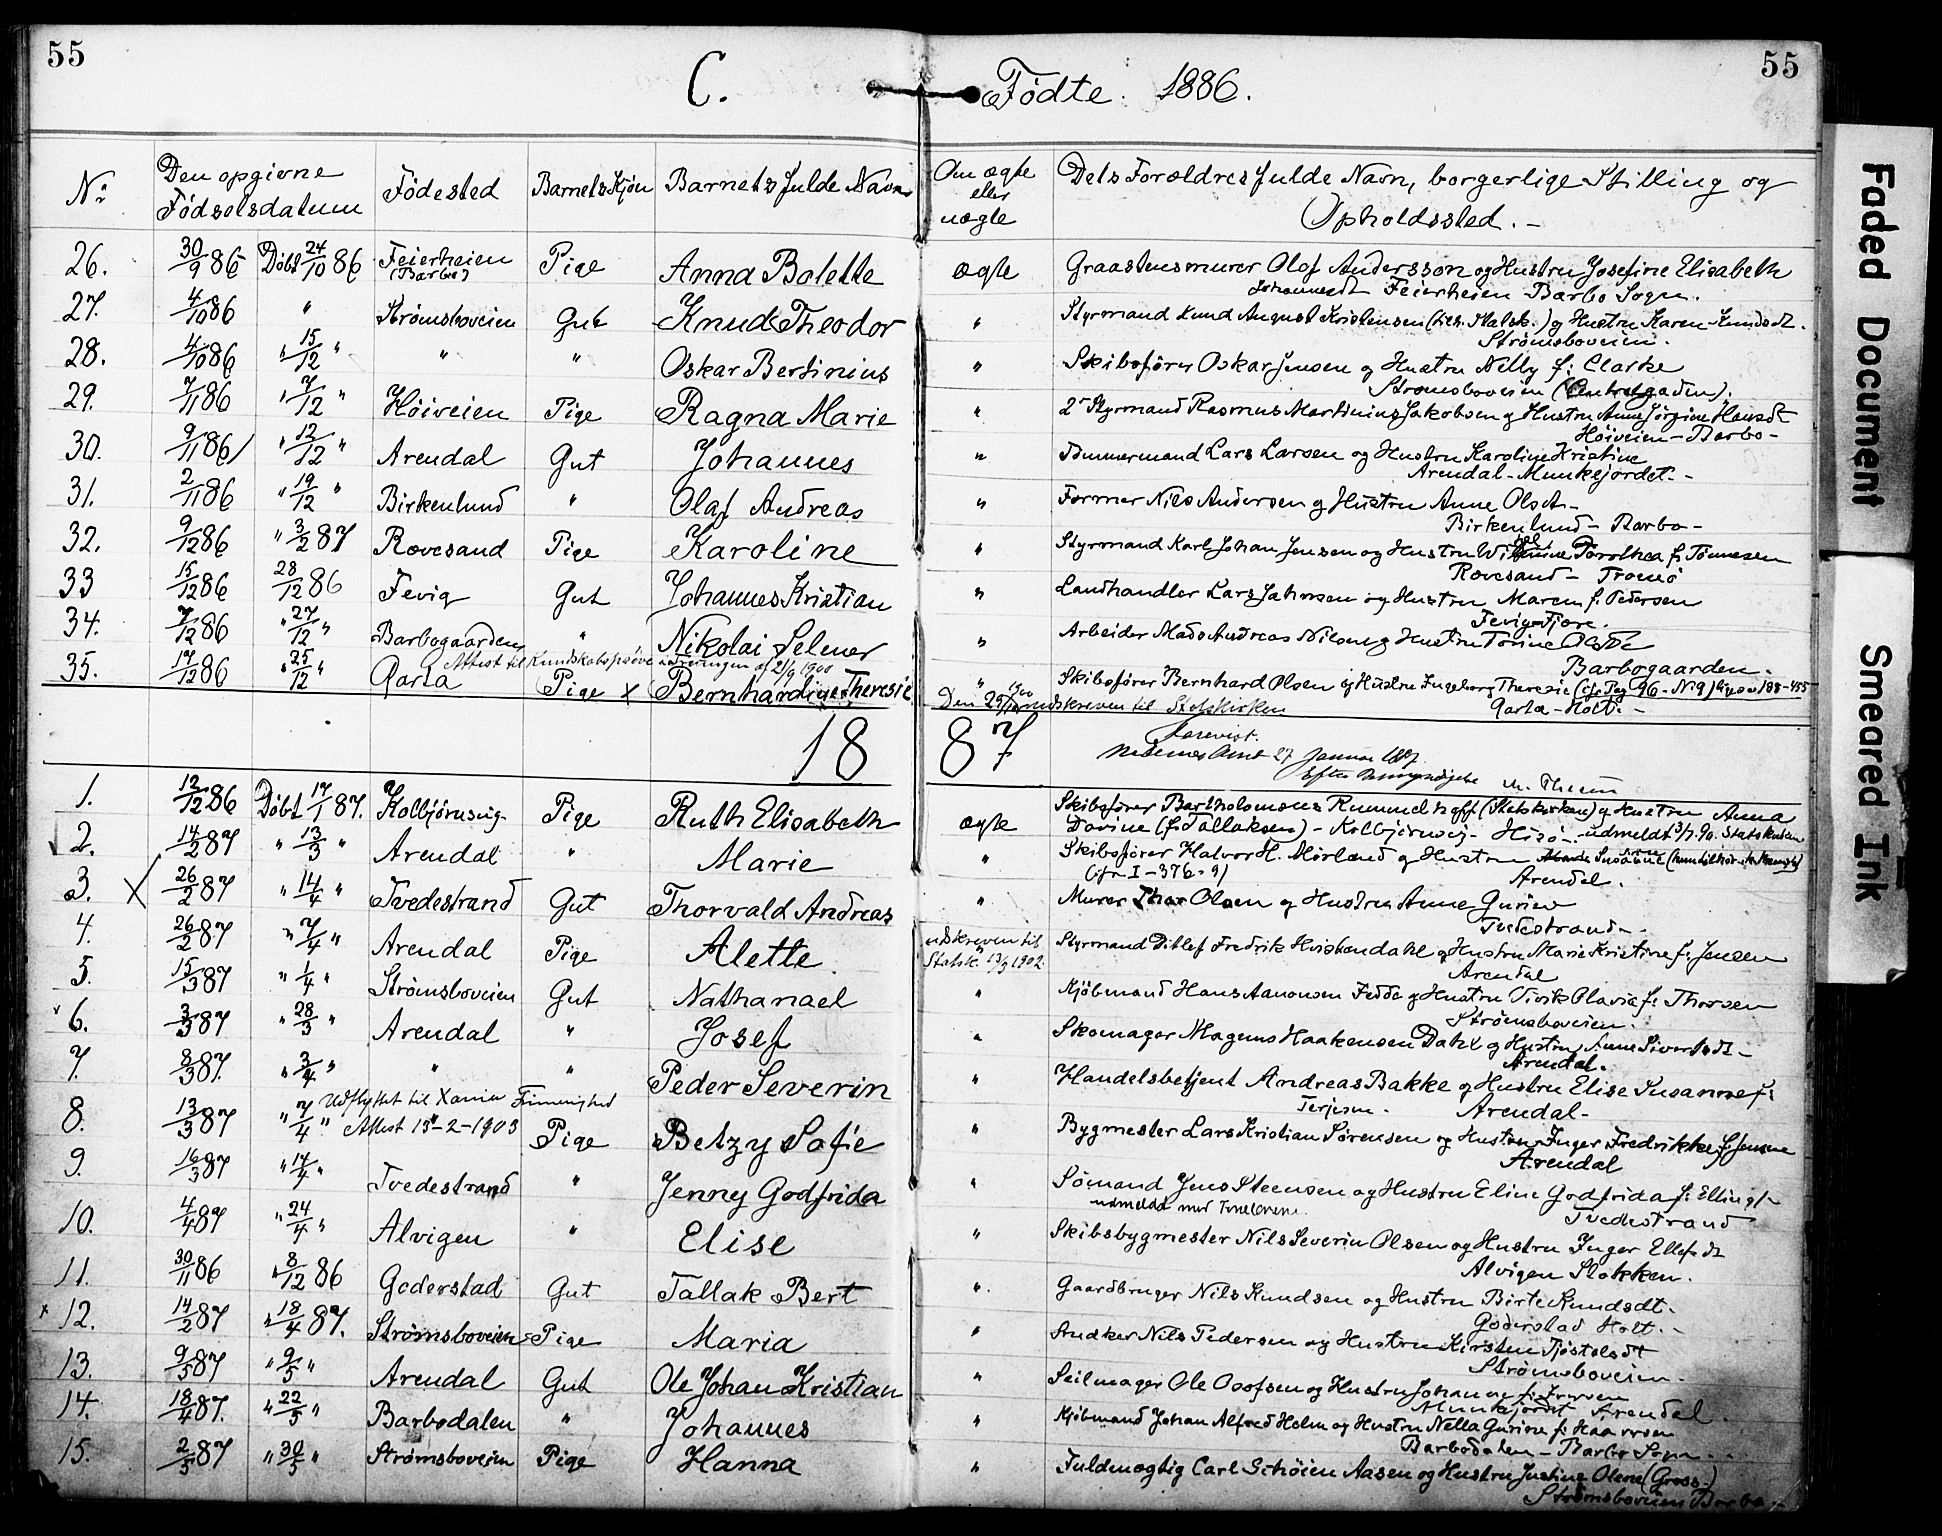 55
55
C. Fødte. 1886.
Nr. Den opgivne Fødselsdatum Fødested Barnets Kjøn Barnets fulde Navn Om ægte eller uægte Dets Forældres fulde Navn, borgerlige Stilling og Opholdssted. -
26. 30/9 86 Døbt 24/10 86 Feierheien (Barbo) Pige Anna Bolette ægte Graastensmurer Olof Andersson og Hustru Josefine Elisabeth
Johannesdt Feierheien Barbo Sogn.
27. 4/10 86 " Strømsboveien Gut Knud Theodor " Styrmand Knud August Kristensen (tilh. Statsk.) og Hustru Karen Knudsdt.
Strømsboveien.
28. 4/10 86 " 15/12 " " " Oskar Bertinius " Skibsfører Oskar Jensen og Hustru Nelly f: Clarke
Strømsboveien (Centralgaden).
29. 7/11 86 " 7/12 " Høiveien Pige Ragna Marie " 2' Styrmand Rasmus Martinius Jakobsen og Hustru Anne Jørgine Hansdt
Høiveien - Barbo -
30. 9/11 86 " 12/12 " Arendal Gut Johannes " Tømmermand Lars Larsen og Hustru Karoline Kristine
Arendal - Munkejordet. -
31. 2/11 86 " 19/12 " Birkenlund " Olaf Andreas " Former Nils Andersen og Hustru Anne Olsdt -
Birkenlund - Barbo -
32. 9/12 86 " 3/2 87 Rævesand Pige Karoline " Styrmand Karl Johan Jensen og Hustru Dorothea f: Tønnesen
Rævesand - Tromø
33 15/12 86 28/12 86 Fevig Gut Johannes Kristian " Landhandler Lars Jahnsen og Hustru Maren f: Pedersen
Fevig - Fjære.
34. 7/12 86 " 27/12 " Barbogaarden " Nikolai Selmer " Arbeider Mads Andreas Nilsen og Hustru Torine Olsdt
Barbogaarden.
Attest til Kundskabsprøve 21/9 1900
35. 17/12 86 " 25/12 " Garta Pige x Bernhardine Theresie " Skibsfører Bernhard Olsen og Hustru Ingeborg Theresie
Den 29/ 1900 udskreven til Statskirken Garta - Holt. -
1887
Nedenes Amt 27 Januar 1887
Efter
1. 12/12 86 Døbt 17/1 87. Kolbjørnsvig Pige Ruth Elisabeth ægte Skibsfører Bartholomæus Rummelhoff (Statskirken) og Hustru Anna
Davine (f: Tallaksen) - Kolbjørnsvig - Hisø. - udmeldt 3/7 90. Statskirken
2. 14/2 87 " 13/3 " Arendal " Marie " Skibsfører Halvor H. Mørland og Hustru Susanne
(cfr I - 376 - 9) Arendal.
3. X 26/2 87 " 14/4 " Tvedestrand Gut Thorvald Andreas " Murer Thor Olsen og Hustru Anne Gurine
Tvedestrand -
4. 26/2 87 " 7/4 " Arendal Pige Alette udskreven til Statsk. 13/3 1902. Styrmand Ditlef Fredrik Hvistendahl og Hustru Marie Kristine f: Jensen
Arendal
5. 15/3 87 " 1/4 " Strømsboveien Gut Nathanael " Kjøbmand Hans Aanonsen Fedde og Hustru Tivik Olavia f: Thorsen
Strømsboveien.
6. 3/3 87 " 28/3 " Arendal " Josef " Skomager Magnus Haakensen Dahl og Hustru Anne Sivertsdt -
Arendal.
7. 8/3 87. " 3/4 " " " Peder Severin " Handelsbetjent Andreas Bakke og Hustru Elise Susanne f:
Terjesen. Arendal -
Udflyttet til Xania Frimenighed
8. 13/3 87 " 7/4 " Attest 15-2-1903 Pige Betzy Sofie " Bygmester Lars Kristian Sørensen og Hustru Inger Fredrikke f: Jensen
Arendal
9. 16/3 87 " 14/4 " Tvedestrand " Jenny Godfrida " Sømand Jens Steensen og Hustru Eline Godfrida f: Ellings
udmeldt med Forældrene. Tvedestrand
10. 4/4 87 " 24/4 " Alvigen " Elise " Skibsbygmester Nils Severin Olsen og Hustru Inger Ellefsdt
Alvigen Stokken.
11. 30/11 86 " 8/12 86 Goderstad Gut Tallak Bert " Gaardbruger Nils Knudsen og Hustru Birte Knudsdt. -
Goderstad Holt. -
x 12. 14/2 87 " 18/4 87. Strømsboveien Pige Maria " Snedker Nils Pedersen og Hustru Kirsten Tjøstelsdt
Strømsboveien.
13. 9/5 87 " 9/5 " Arendal Gut Ole Johan Kristian " Seilmager Ole Oolfsen og Hustru Johanne f:
Munkejordet Arendal
14. 18/4 87. " 22/5 " Barbodalen " Johannes " Kjøbmand Johan Alfred Holm og Hustru Nella Gurine f: Haavorsen
Barbodalen - Barbo Sogn -
15. 2/5 87 " 30/5 " Strømsboveien Pige Hanna " Fuldmægtig Carl Schøien Aasen og Hustru Justine Olene (Gross)
Strømsboveien Barbo. -
Faded Document
Smeared Ink